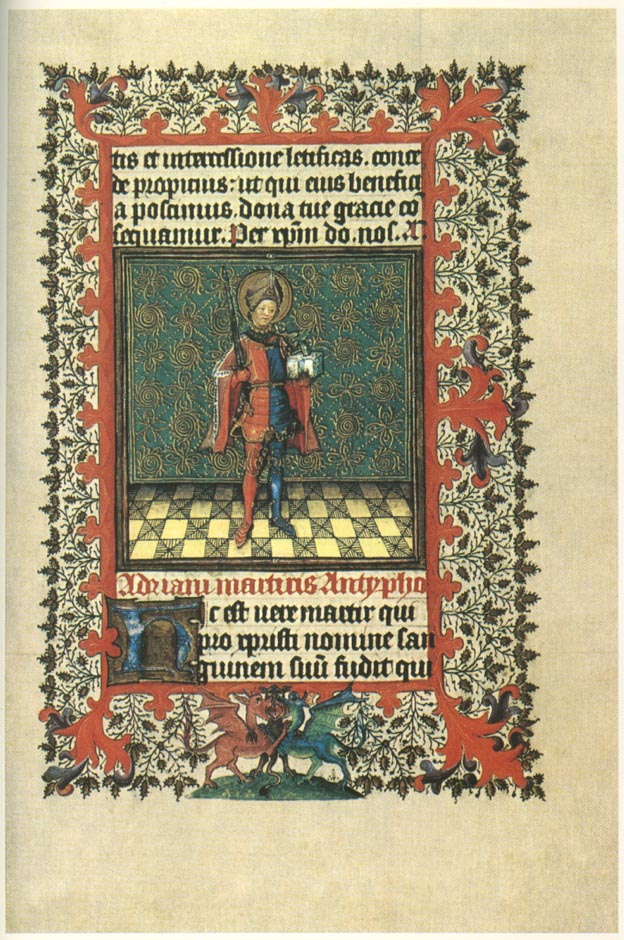 tis et intercessione letificas. conce
de propicius: ut qui eius benefici
a poscimus. dona tue gracie co
sequamur. Per xpm do. nos. A.
Adriani martiris Antypho
Hic est uere martir qui
pro xpristi nomine san
guinem suū fudit qui